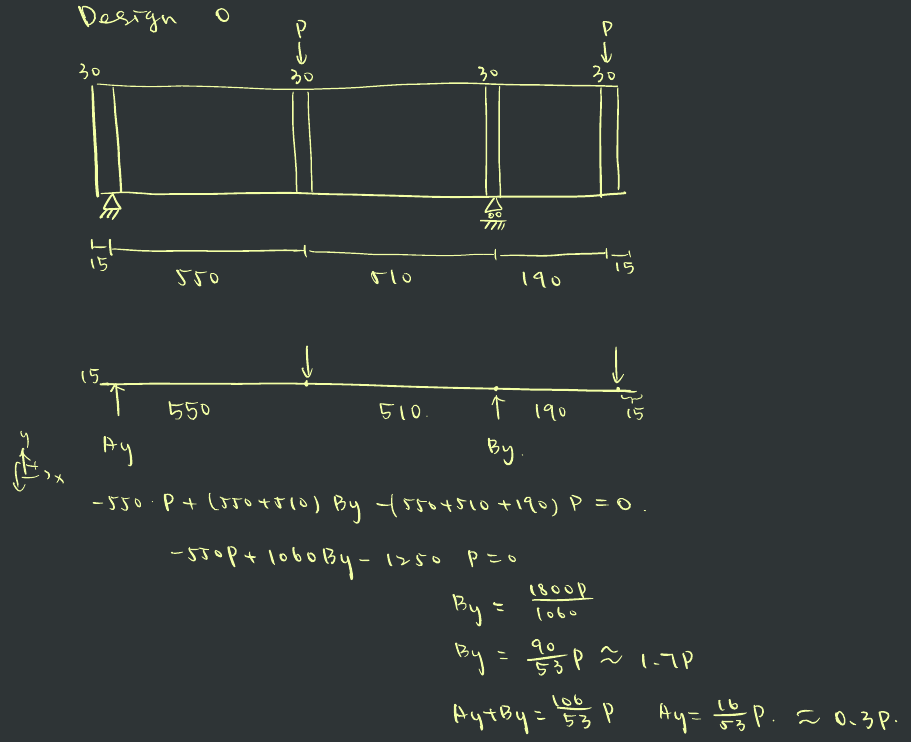 Design 0
P P
30 30 30 30
15 550 510 190 15
15
550 510. 190 15
Ay By.
y
+
x
-550 · P + (550+510) By -(550+510+190) P = 0.
-550P + 1060By - 1250 P = 0
By = 1800P/1060
By = 90/53 P ≈ 1.7P
Ay+By = 106/53 P Ay = 16/53 P. ≈ 0.3P.